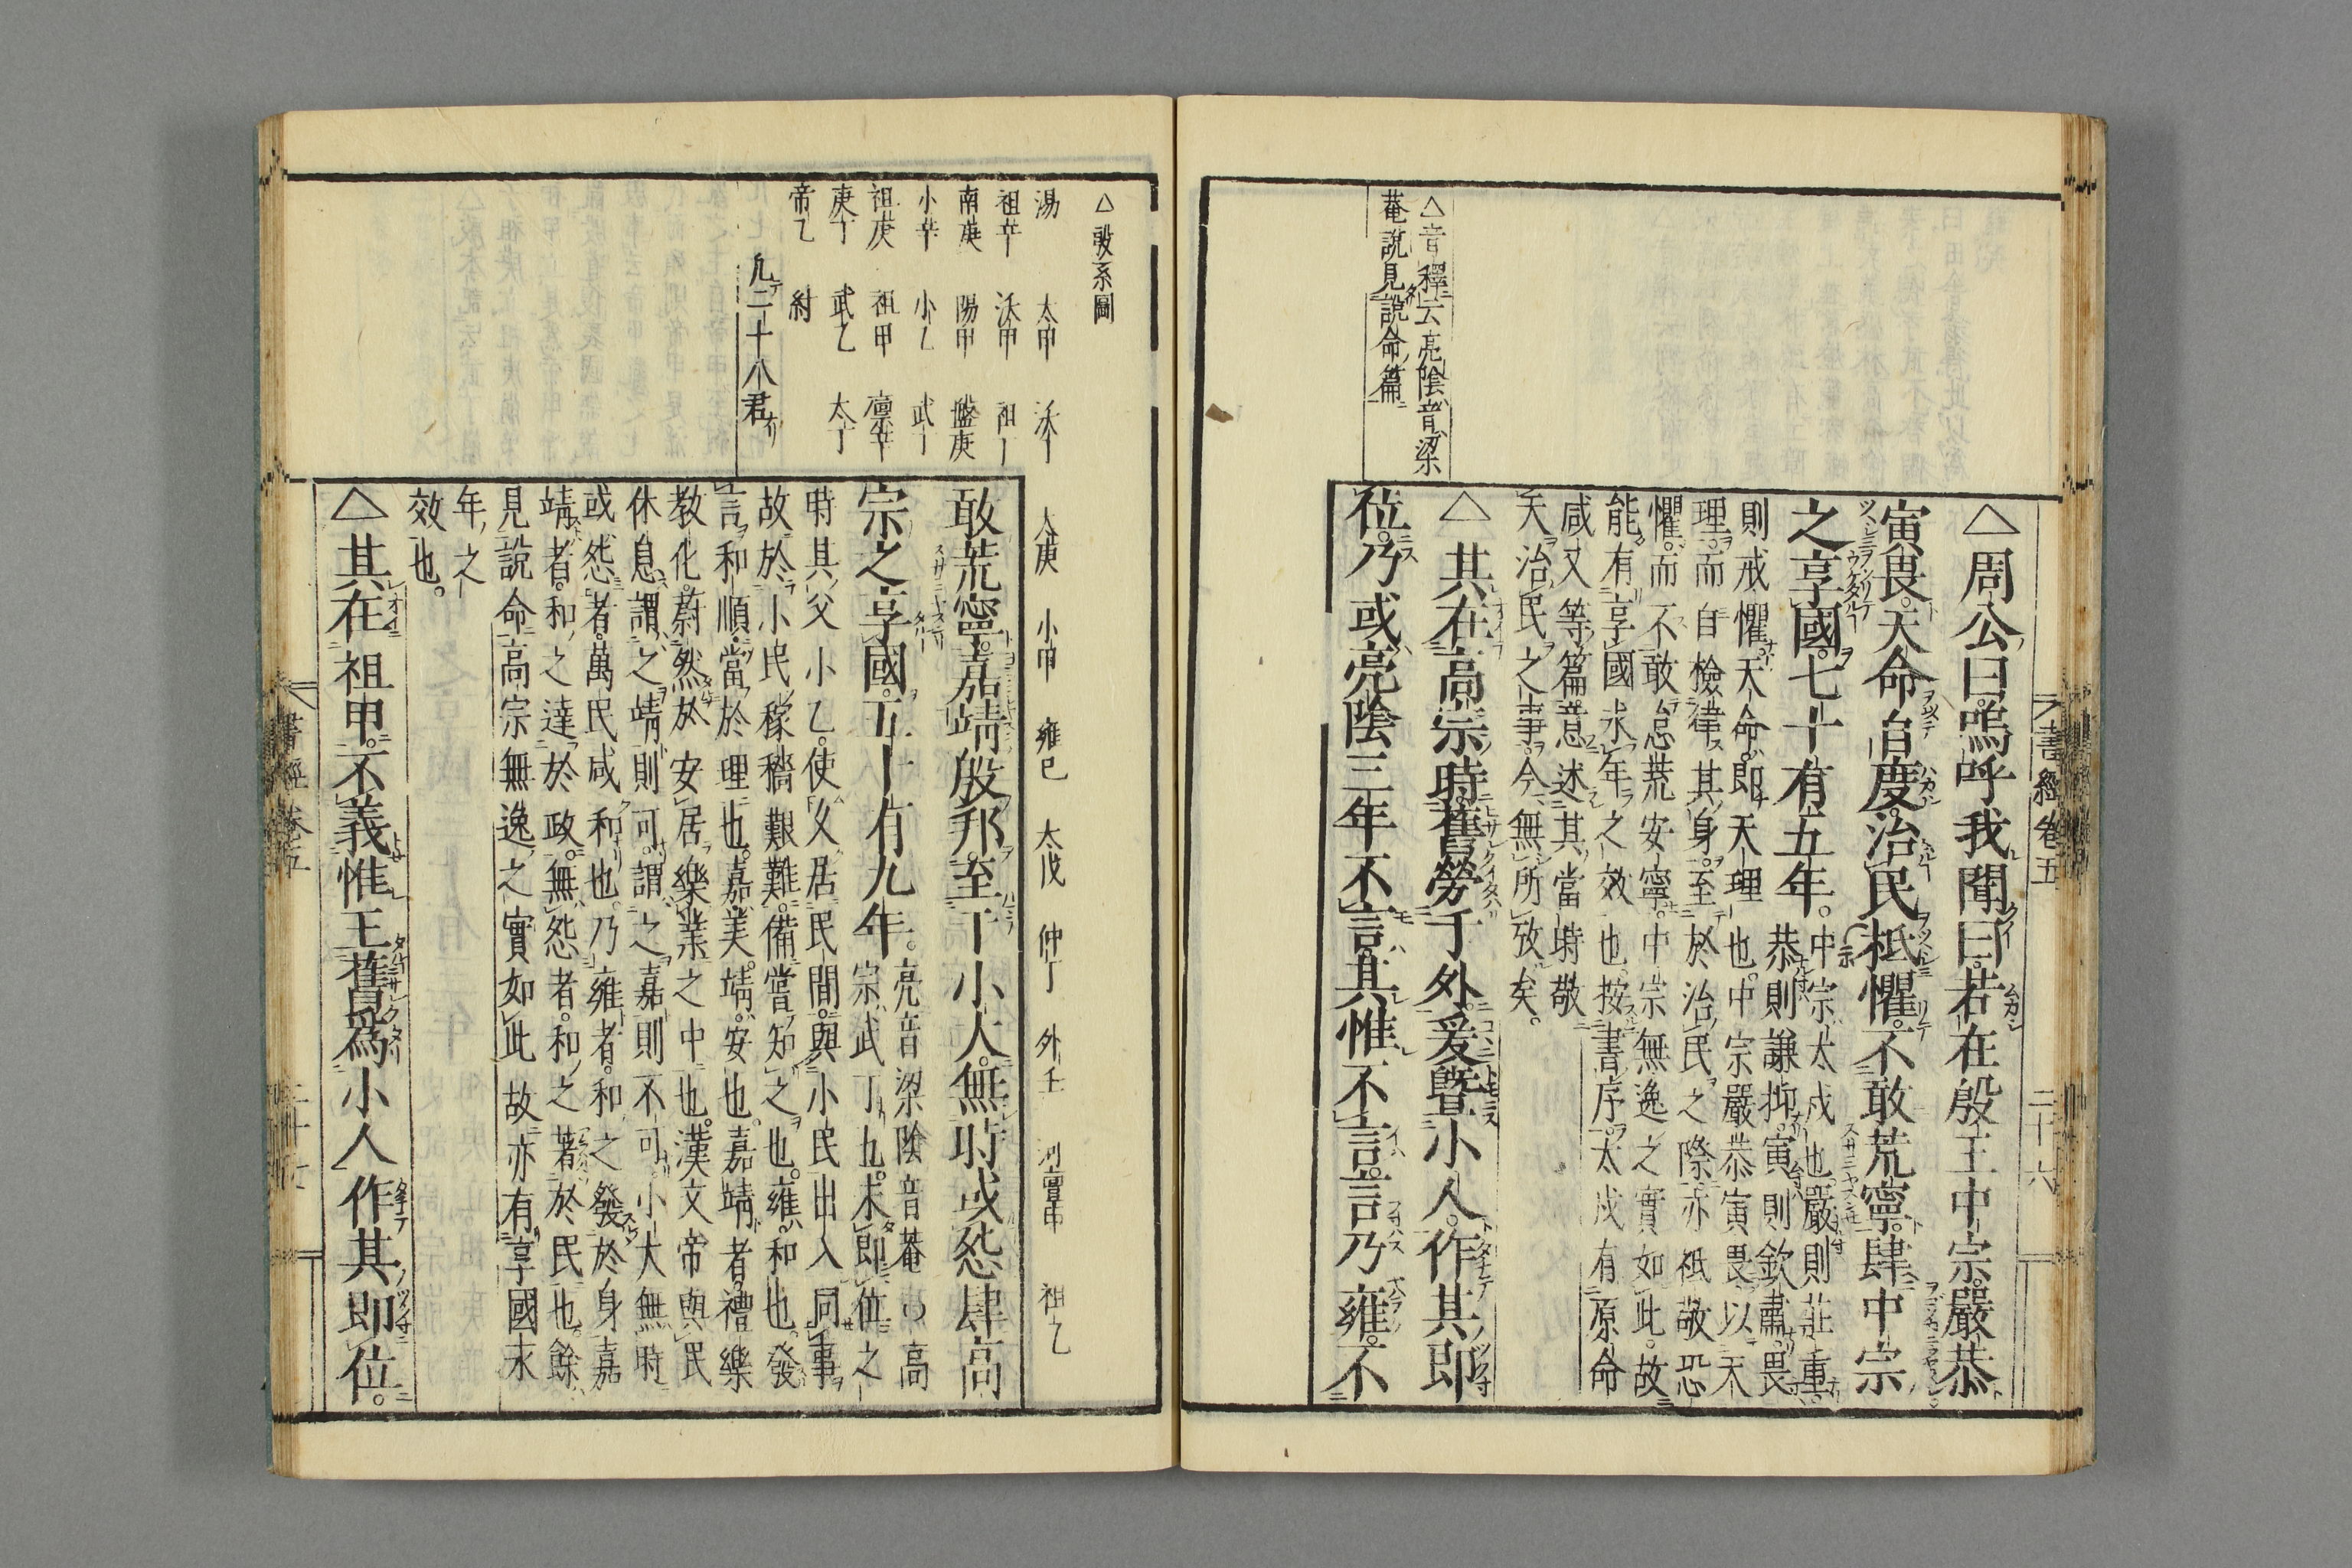 書經卷五
二十六
△音釋云亮陰音梁
菴說見說命篇
△周公曰嗚呼我聞曰若在殷王中宗嚴恭
寅畏天命自度治民祗懼不敢荒寧肆中宗
之享國七十有五年。中宗太戊也嚴則莊重
恭則謙抑寅則欽肅畏
則戒懼天命即天理也中宗嚴恭寅畏以天
理而自檢律其身至於治民之際亦祗敬恐
懼而不敢怠荒安寧中宗無逸之實如此故
能有享國永年之效也按書序太戊有原命
咸乂等篇意述其當時敬
天治民之事今無所攷矣。
△其在高宗時舊勞于外爰曁小人作其即
位乃或亮陰三年不言其惟不言言乃雍不
△殷系圖
湯 太甲 沃丁 太庚 小甲 雍己 太戊 仲丁 外壬 河亶甲 祖乙
祖辛 沃甲 祖丁
南庚 陽甲 盤庚
小辛 小乙 武丁
祖庚 祖甲 廩辛
庚丁 武乙 太丁
帝乙 紂
凡二十八君
敢荒寧嘉靖殷邦至于小大無時或怨肆高
宗之享國五十有九年。亮音梁陰音菴○高
宗武丁也未即位之
時其父小乙使久居民間與小民出入同事
故於小民稼穡艱難備嘗知之也雍和也發
言和順當於理也嘉美靖安也嘉靖者禮樂
教化蔚然於安居樂業之中也漢文帝與民
休息謂之靖則可謂之嘉則不可小大無時
或怨者萬民咸和也乃雍者和之發於身嘉
靖者和之達於政無怨者和之著於民也餘
見說命高宗無逸之實如此故亦有享國永
年之
效也。
△其在祖甲不義惟王舊爲小人作其即位。
書經卷五
二十七